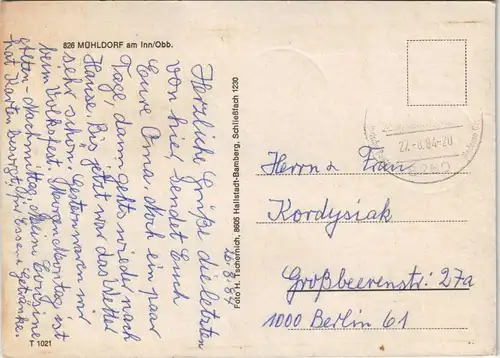 826 MÜHLDORF am Inn/Obb.
26.8.84
Herzliche Grüße die letzten
von hier sendet Euch
Eure Oma. Noch ein paar
Tage, dann gehts wieder nach
Hause. Bis jetzt war das Wetter
sehr schön. Gestern waren wir
beim Volksfest. Donnerstag ist
Alten-Nachmittag. Mein Cousine
hat Karten besorgt, für Essen u. Getränke.
Foto H. Tschernich, 8605 Hallstadt-Bamberg, Schließfach 1230
T 1021
27.-8.84-20
8260
Herrn u. Frau
Kordysiak
Großbeerenstr. 27a
1000 Berlin 61